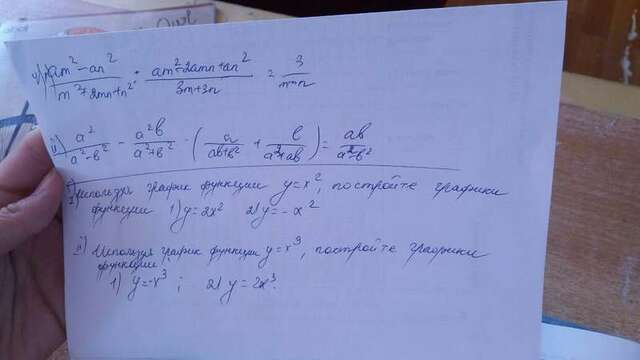 am² - an² / m² + 2mn + n² : am² - 2amn + an² / 3m + 3n = 3 / m - n
a² / a² - b² - a²b / a² + b² · ( a / ab + b² + b / a² + ab ) = ab / a² - b²
Используя график функции y = x², постройте графики
функции 1) y = 2x² 2) y = - x²
Используя график функции y = x³, постройте графики
функции
1) y = -x³ ; 2) y = 2x³.